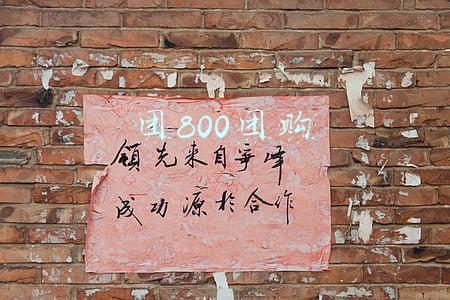 团800团购
领先来自争峰
成功源於合作